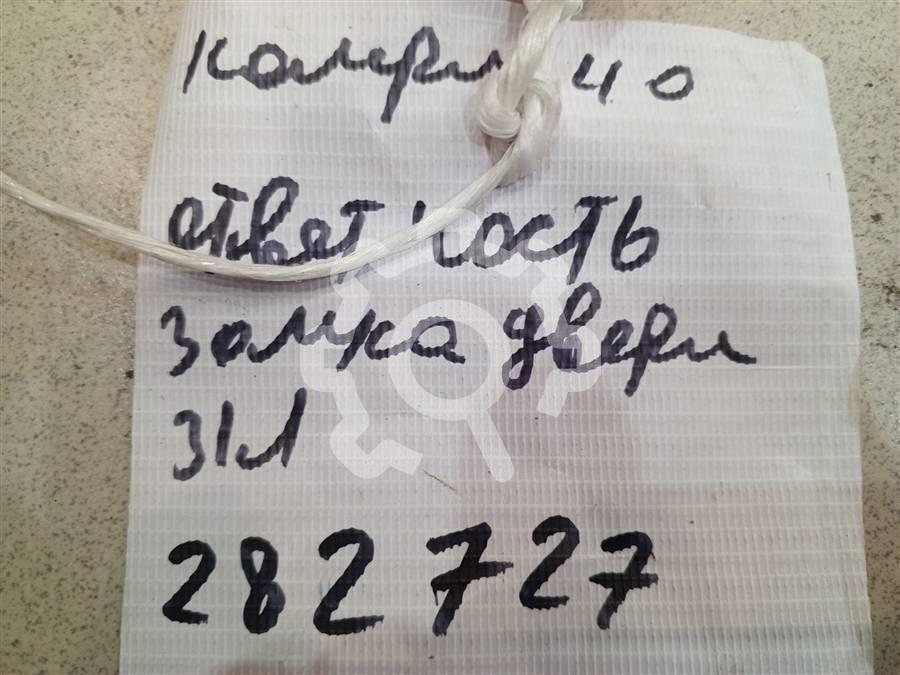 камри 40
ответ часть
замка двери
З/Л
282727